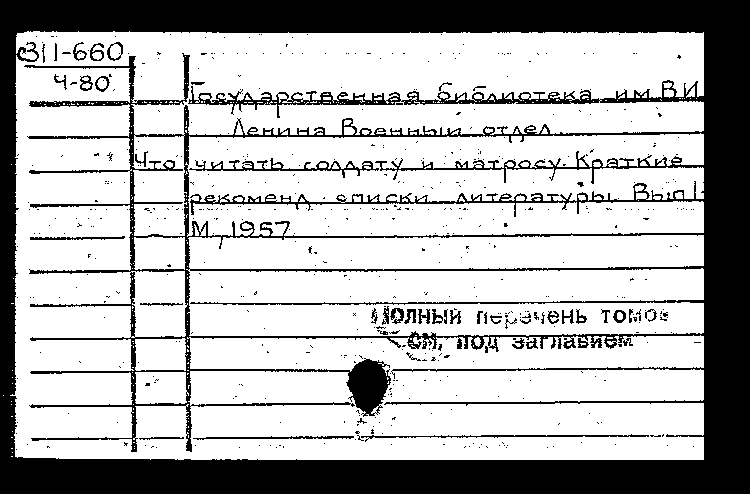 311-660
Ч-80
Государственная библиотека им В.И.
Ленина Военный отдел
Что читать солдату и матросу. Краткие
рекоменд списки литературы. Вып 1-
М., 1957
Полный перечень томов
см. под заглавием